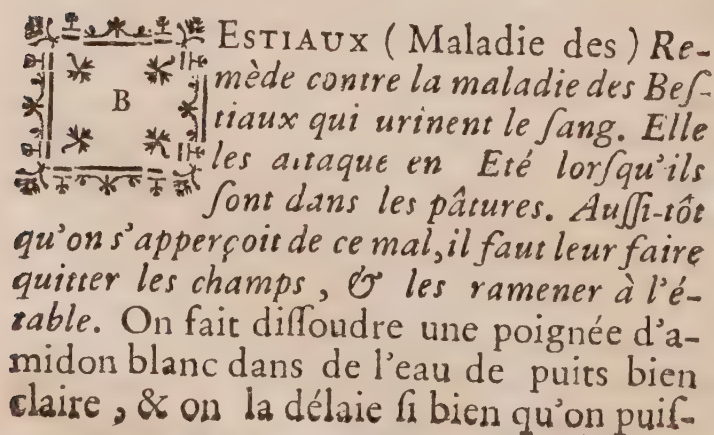 BESTIAUX ( Maladie des ) Re-
mède contre la maladie des Beſ-
tiaux qui urinent le ſang. Elle
les attaque en Eté lorſqu'ils
ſont dans les pâtures. Auſſi-tôt
qu'on s'apperçoit de ce mal, il faut leur faire
quitter les champs, & les ramener à l'é-
table. On fait diſſoudre une poignée d'a-
midon blanc dans de l'eau de puits bien
claire, & on la délaie ſi bien qu'on puiſ-